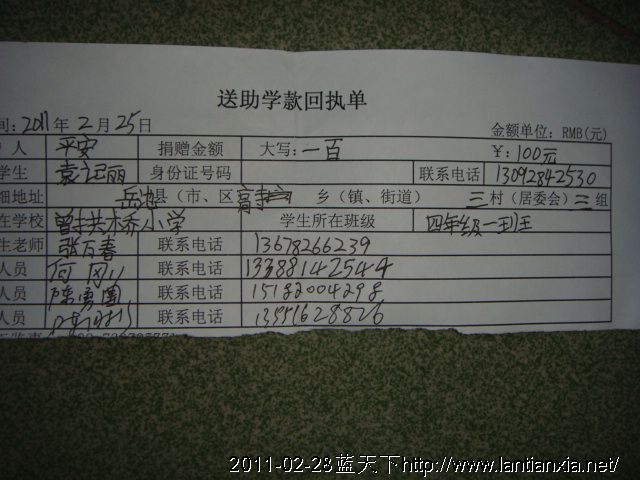 送助学款回执单
间: 2011年 2月 25日 金额单位: RMB(元)
人 平安 捐赠金额 大写: 一百 ¥: 100元
学生 身份证号码 联系电话 13092842530
细地址 岳池县(市、区) 乡(镇、街道) 三村(居委会)三组
在学校 曾拱木桥小学 学生所在班级 四年级一班
生老师 张万春 联系电话 13678266239
人员 何 联系电话 13388142544
人员 陈勇 联系电话 15182004298
人员 联系电话 13551628826
2011-02-28蓝天下http://www.lantianxia.net/